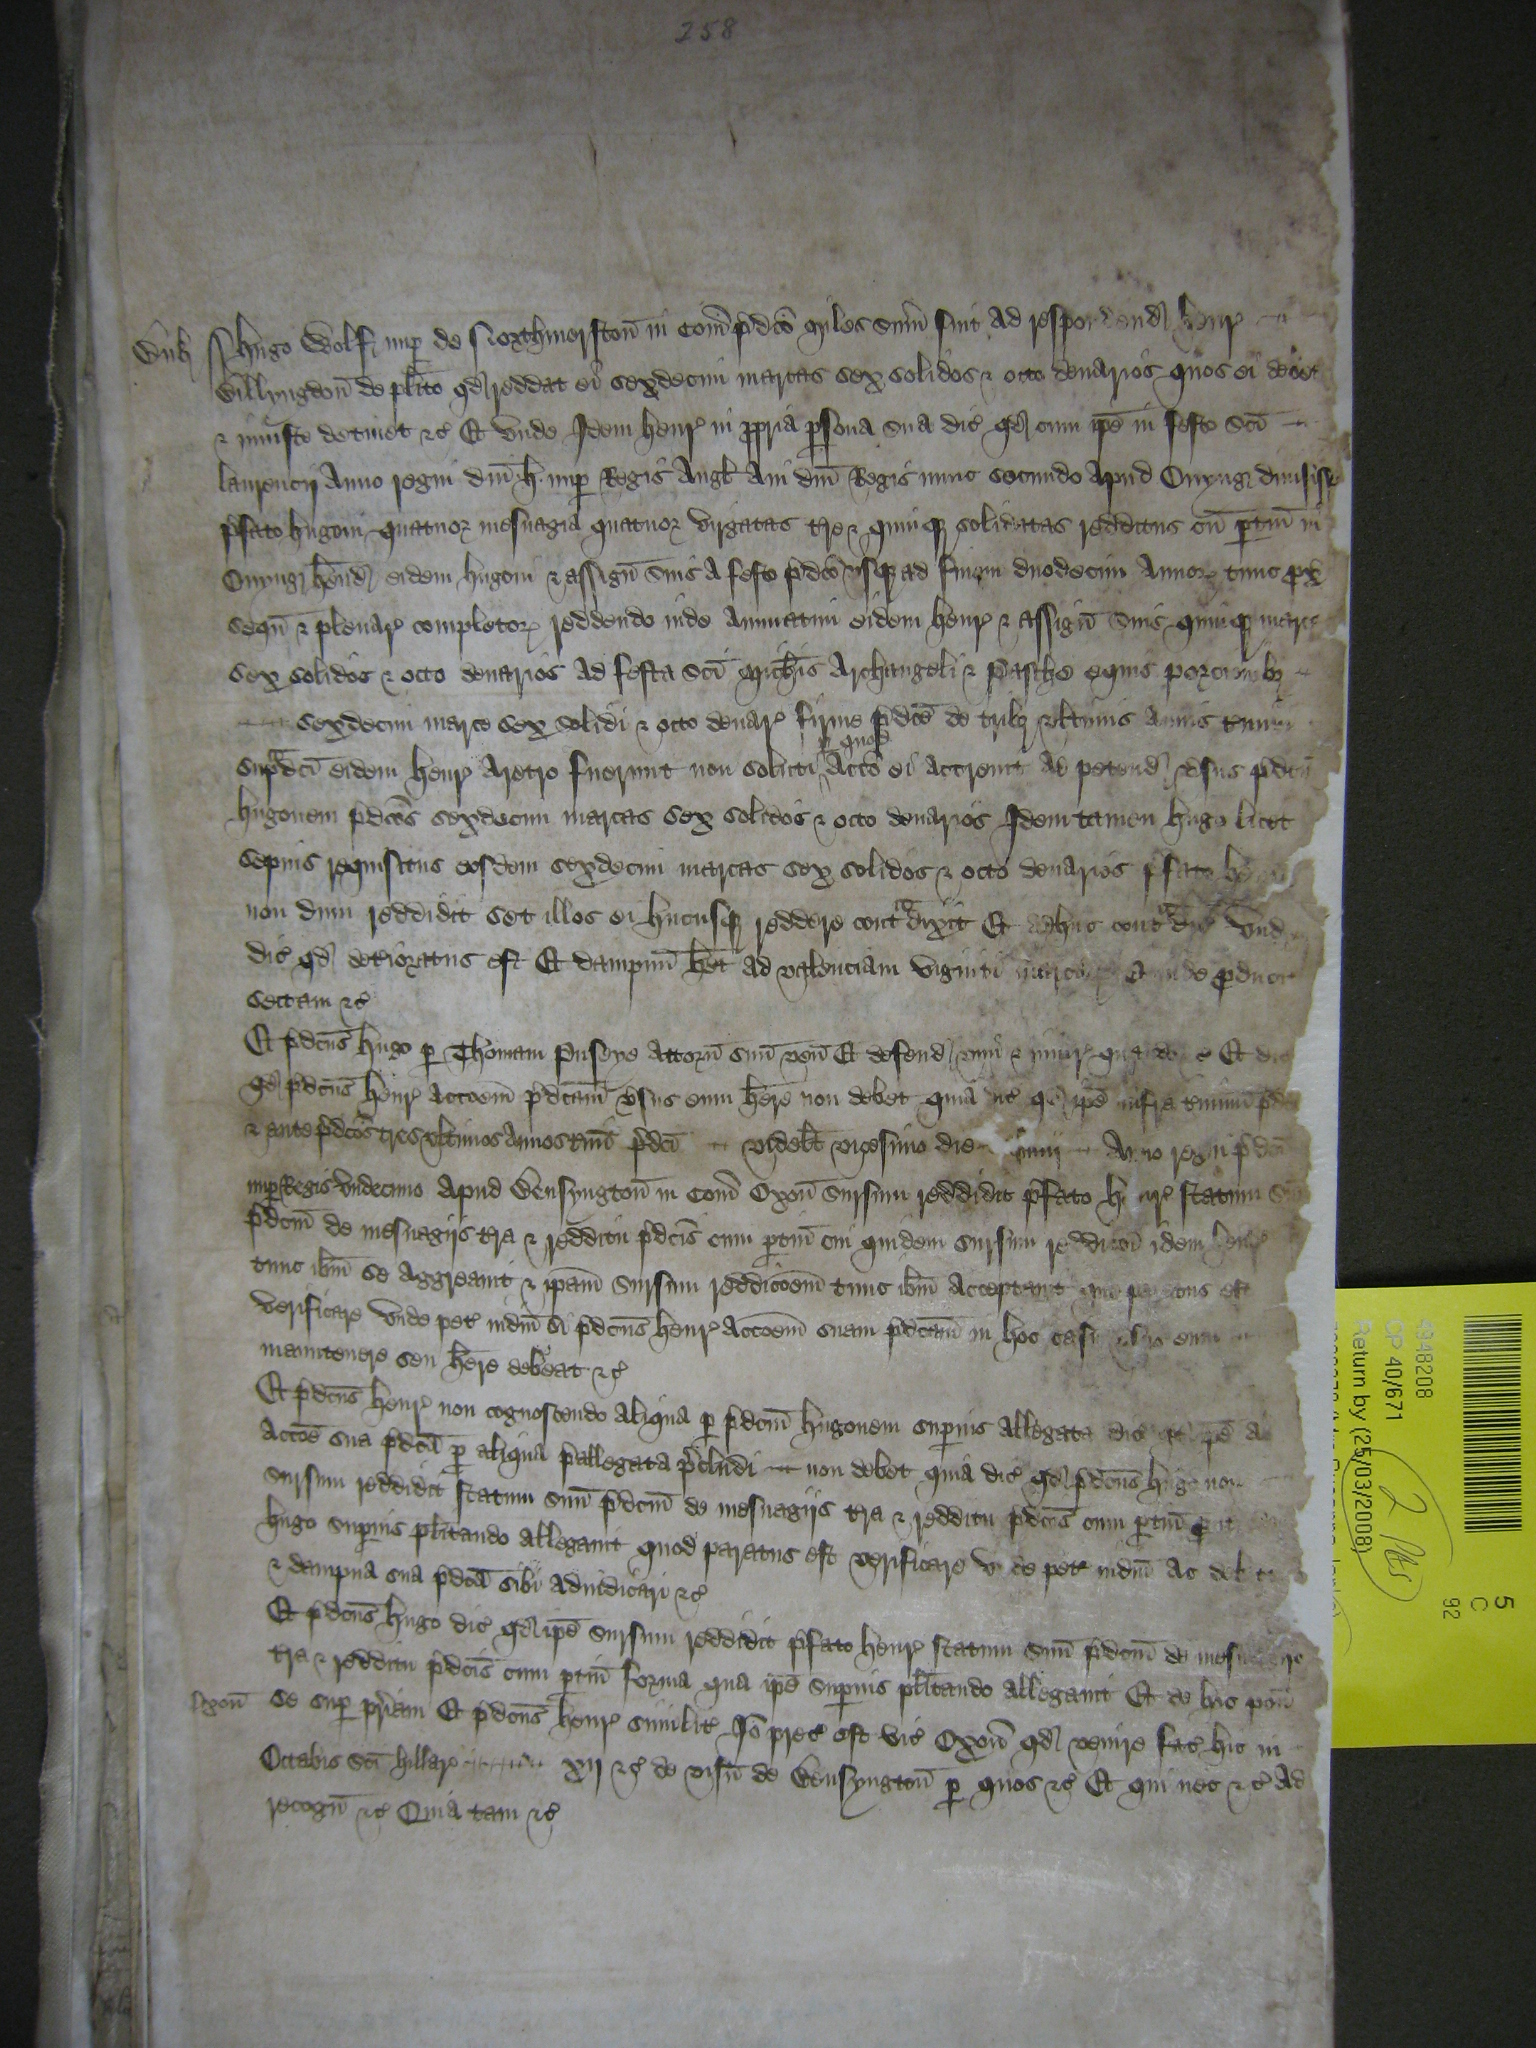 258
Berk Hugo Wolf nup de Northmorston in Com p̄dco Miles sum fuit ad respondend Henr
Willyngdon de plito qd reddat ei sexdecim marcas sex solidos & octo denarios quos ei debet
& iniuste detinet &c Et unde Idem Henr in ppria psona sua dic qd cum ipe in festo Sci
Laurencii Anno regni dni H. nup Regis Angl Aui dni Regis nunc secundo apud dimisisset
p̄fato Hugoni quatuor mesuagia quatuor virgatas tre & quinq solidatas redditus cu ptin in
hend eidem Hugoni & assign suis a festo p̄dco usq ad finem duodecim Annor tunc px
sequen & plenar completor reddendo inde annuatim eidem Henr & assign suis quinq marc
sex solidos & octo denarios ad festa Sci Michis Archangeli & Pasche equis porcionib
sexdecim marce sex solidi & octo denar firme p̄dce de trib ultimis annis tmini
sup̄dci eidem Henr aretro fuerunt non soluti p quod acco ei accreuit ad petend vsus p̄dcm
Hugonem p̄dcas sexdecim marcas sex solidos & octo denarios Idem tamen Hugo licet
sepius requisitus eosdem sexdecim marcas sex solidos & octo denarios p̄fato Henr
non dum reddidit set illos ei hucusq reddere contradixit Et adhuc contradic unde
dic qd deterioratus est Et dampnu het ad valenciam viginti marcar Et inde producit
sectam &c
Et p̄dcus Hugo p Thomam Puseye attorn suu ven Et defend vim & iniur quando &c Et dic
qd p̄dcus Henr accoem p̄dcam vsus eum here non debet quia dic qd ipe infra tminu p̄dcm
& ante p̄dcos tres ultimos annos tmi p̄dci videlt vicesimo die Anno regni p̄dci
nup Regis undecimo apud Bensyngton in Com Oxon sursum reddidit p̄fato Henr statum suu
p̄dcm de mesuagiis tra & redditu p̄dcis cum ptin cui quidem sursum reddicoi idem Henr
tunc ibm se aggreauit & ipam sursum reddicoem tunc ibm acceptauit que paratus est
verificare unde pet iudm si p̄dcus Henr accoem suam p̄dcam in hoc casu vsus eum
manutenere seu here debeat &c
Et p̄dcus Henr non cognoscendo aliqua p p̄dcm Hugonem superius allegata dic qd ipe ab
accoe sua p̄dca p aliqua p̄allegata p̄cludi non debet quia dic qd p̄dcus Hugo non
sursum reddidit statum suu p̄dcm de mesuagiis tra & redditu p̄dcis cum ptin put
Hugo superius plitando allegauit quod paratus est verificare unde pet iudm ac debitu
& dampna sua p̄dca sibi adiudicari &c
Et p̄dcus Hugo dic qd ipe sursum reddidit p̄fato Henr statum suu p̄dcm de mesuagiis
tra & redditu p̄dcis cum ptin forma qua ipe superius plitando allegauit Et de hoc pon
Oxon se sup priam Et p̄dcus Henr similit Io prec est vic Oxon qd venire fac hic in
Octabis Sci Hillar xii &c de visu de Bensyngton p quos &c Et qui nec &c ad
recogn &c Quia tam &c
4948208
CP 40/671
Return by (25/03/2008)
5
C
92